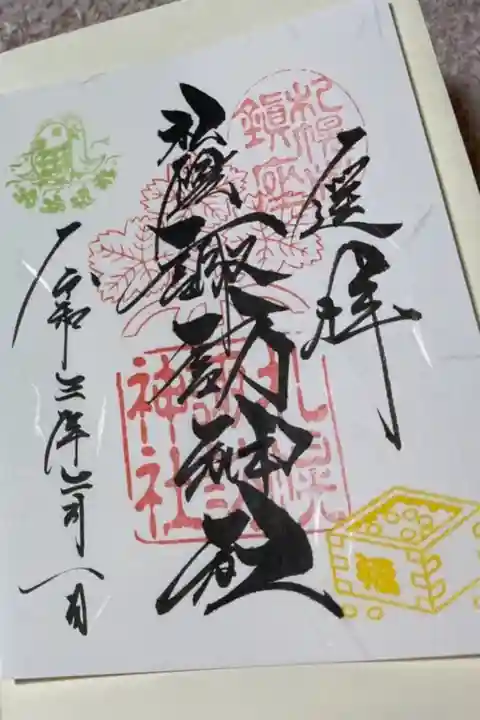 遥拝
札幌諏訪神社
令和三年二月一日
札幌諏訪
神社
福